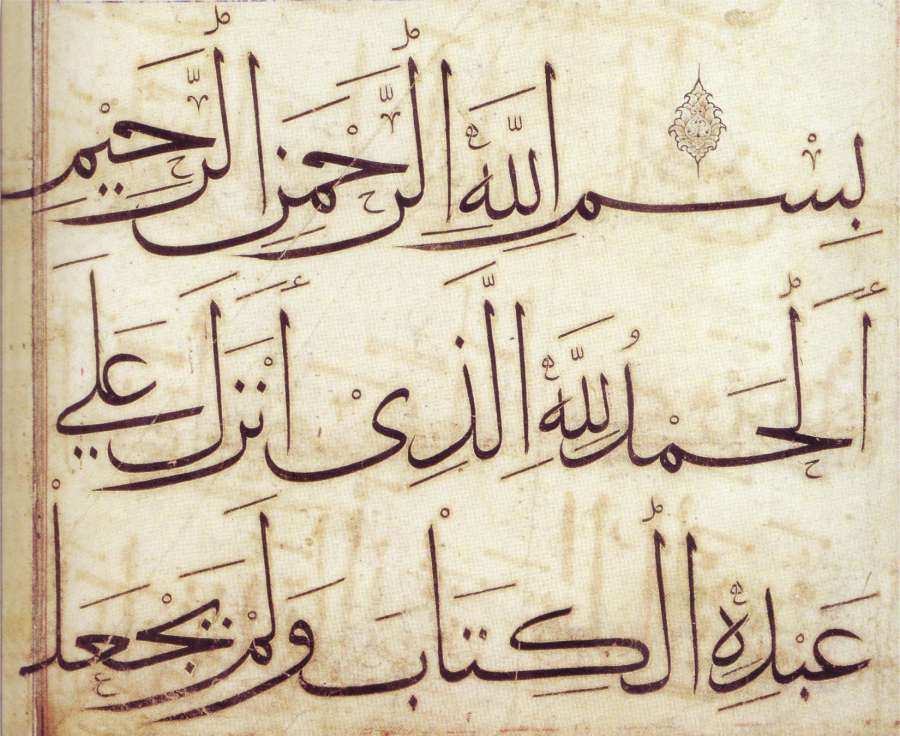 بِسْمِ اللَّهِ الرَّحْمَنِ الرَّحِيمِ
أَلْحَمْدُ لِلَّهِ الَّذِى أَنْزَلَ عَلَى
عَبْدِهِ الْكِتَابَ وَلَمْ يَجْعَلْ